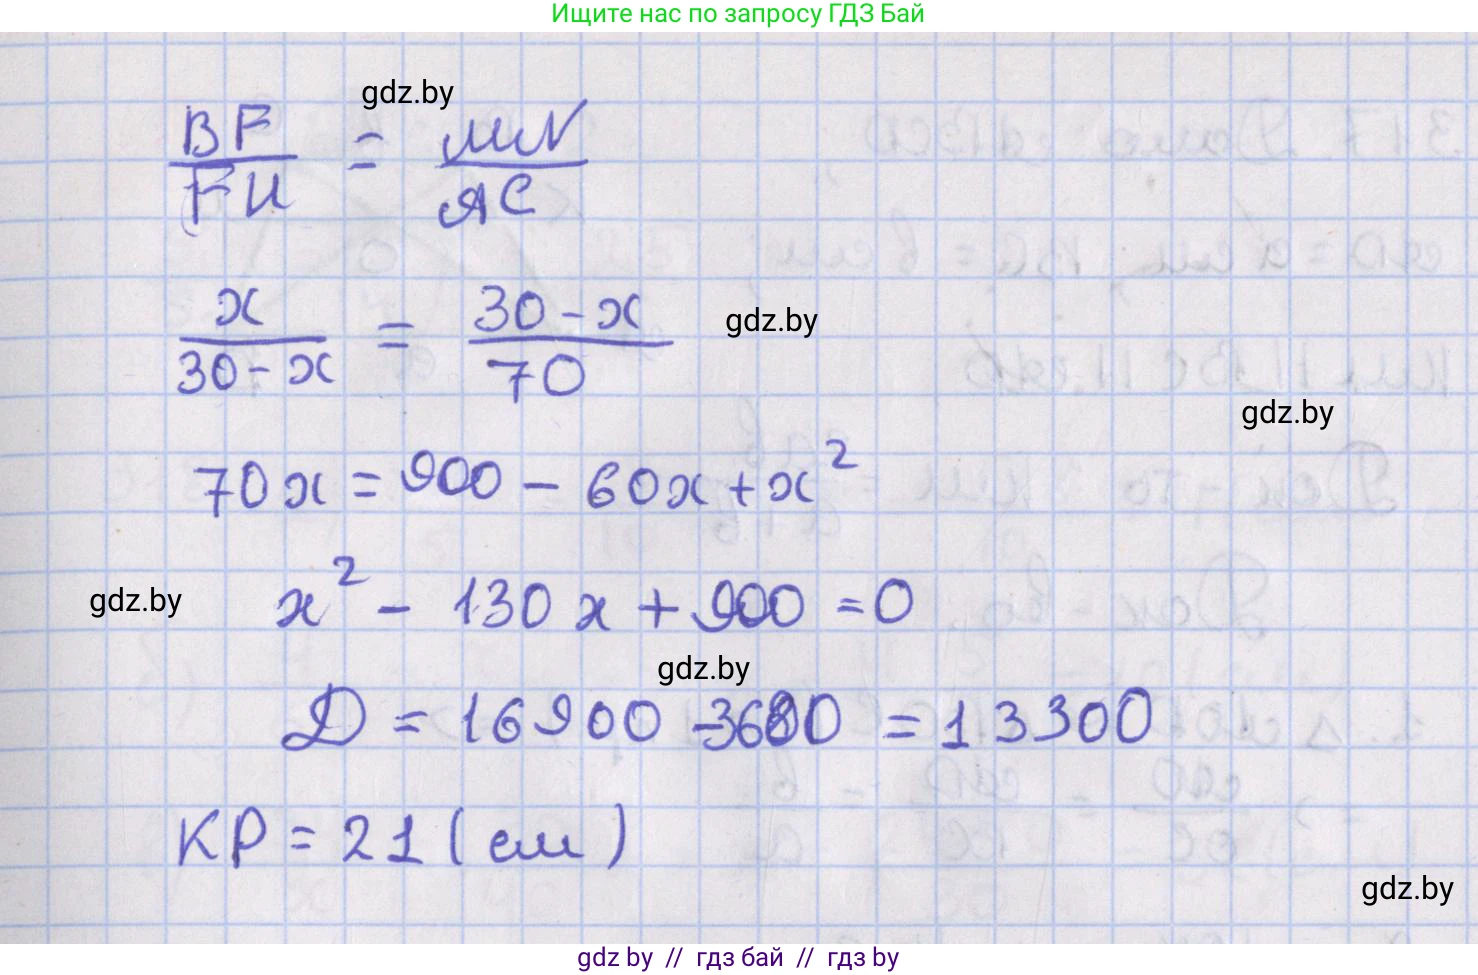 Ищите нас по запросу ГДЗ Бай
gdz.by
BF/FH = MN/AC
x/(30-x) = (30-x)/70
gdz.by
gdz.by
70x = 900 - 60x + x²
gdz.by
x² - 130x + 900 = 0
gdz.by
Д = 16900 - 3600 = 13300
KP = 21 (см)
gdz.by
gdz by // гдз бай // гдз by